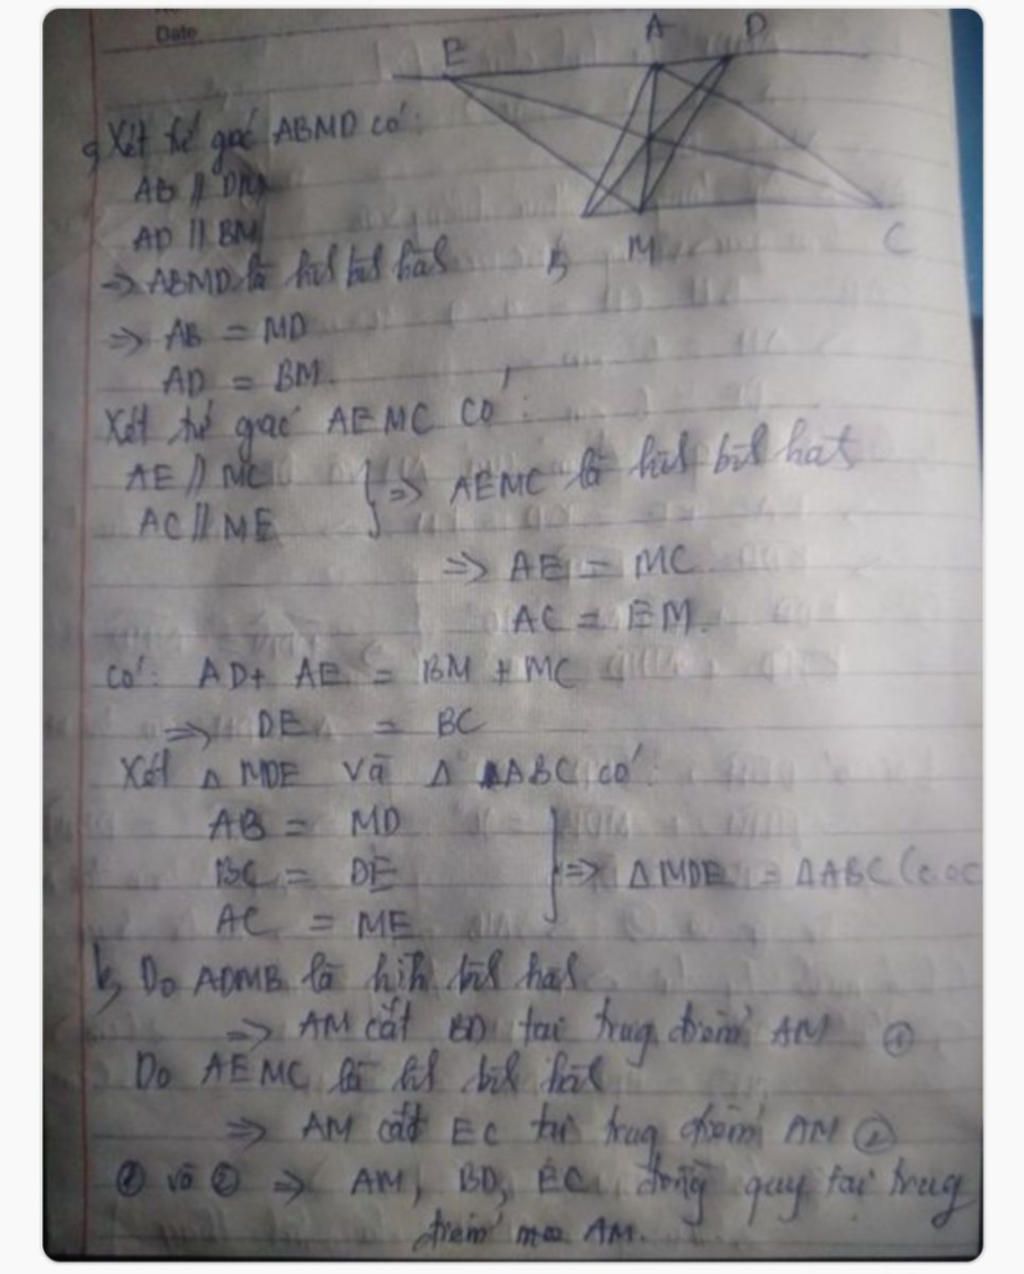 Date
E A D
a, Xét tứ giác ABMD có:
AB // DM
AD // BM
B, M C
=> ABMD là hìh bìh hàh
=> AB = MD
AD = BM.
Xét tứ giác AEMC có:
AE // MC
AC // ME
=> AEMC là hìh bìh hàh
=> AE = MC
AC = EM.
Có: AD + AE = BM + MC
=> DE = BC
Xét Δ MDE và Δ ABC có:
AB = MD
BC = DE
AC = ME
=> ΔMDE = ΔABC (c.c.c
b, Do ADMB là hìh bìh hàh
=> AM cắt BD tại trug điểm AM ①
Do AEMC là hìh bìh hàh
=> AM cắt EC tại trug điểm AM ②
① và ② => AM, BD, EC đồng quy tại trug
điểm AM.